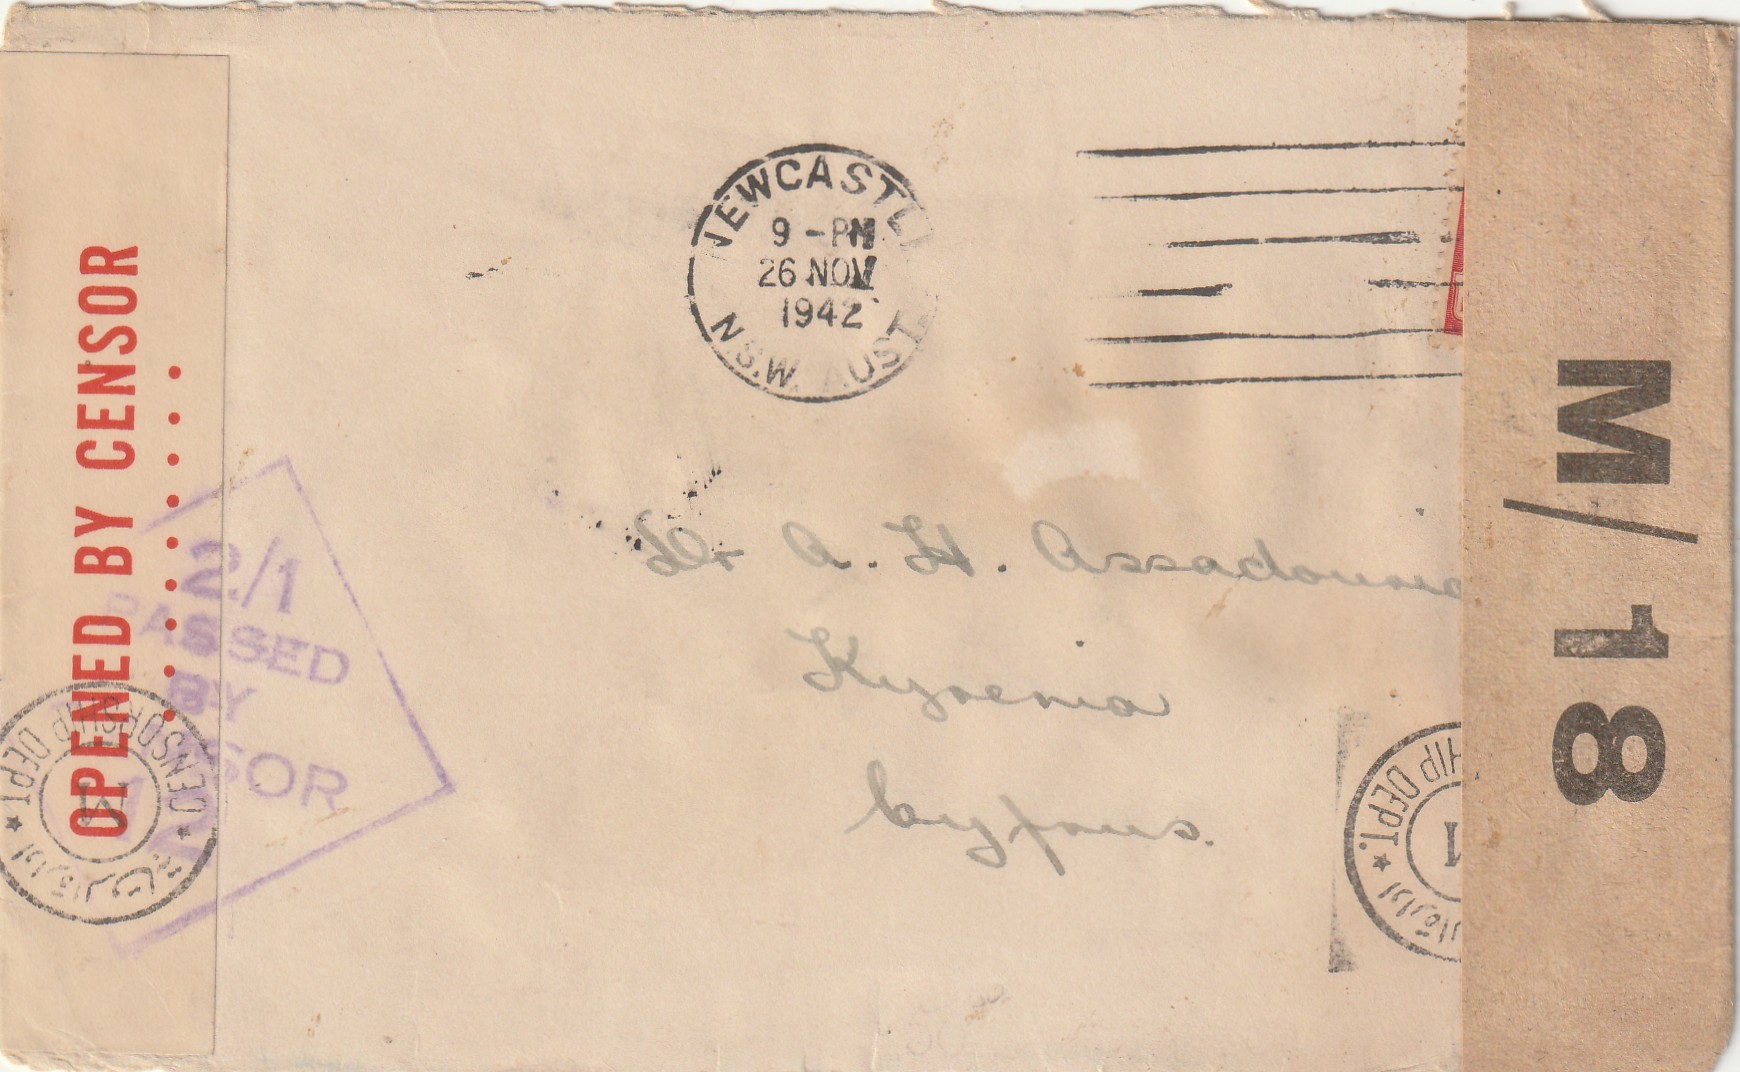 NEWCASTL
9-PM
26 NOV
1942
N.S.W. AUST.
OPENED BY CENSOR
2/1
PASSED
BY
SOR
CENSORSHIP DEPT.
Dr A. H. Assadouria
Kyrenia
Cyprus.
HIP DEPT.
M/18